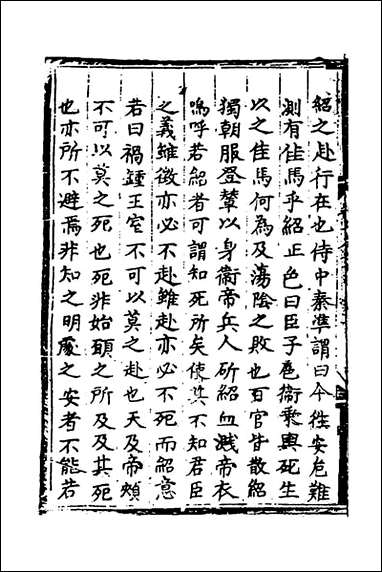 紹之赴行在也侍中秦準謂曰今徃安危難
測有佳馬乎紹正色曰臣子扈衛乘輿死生
以之佳馬何為及蕩陰之敗也百官皆散紹
獨朝服登輦以身衛帝兵人斫紹血濺帝衣
嗚呼若紹者可謂知死所矣使其不知君臣
之義雖徴亦必不赴雖赴亦必不死而紹意
若曰禍鍾王室不可以莫之赴也天及帝頰
不可以莫之死也死非始願之所及及其死
也亦所不避焉非知之明處之安者不能若